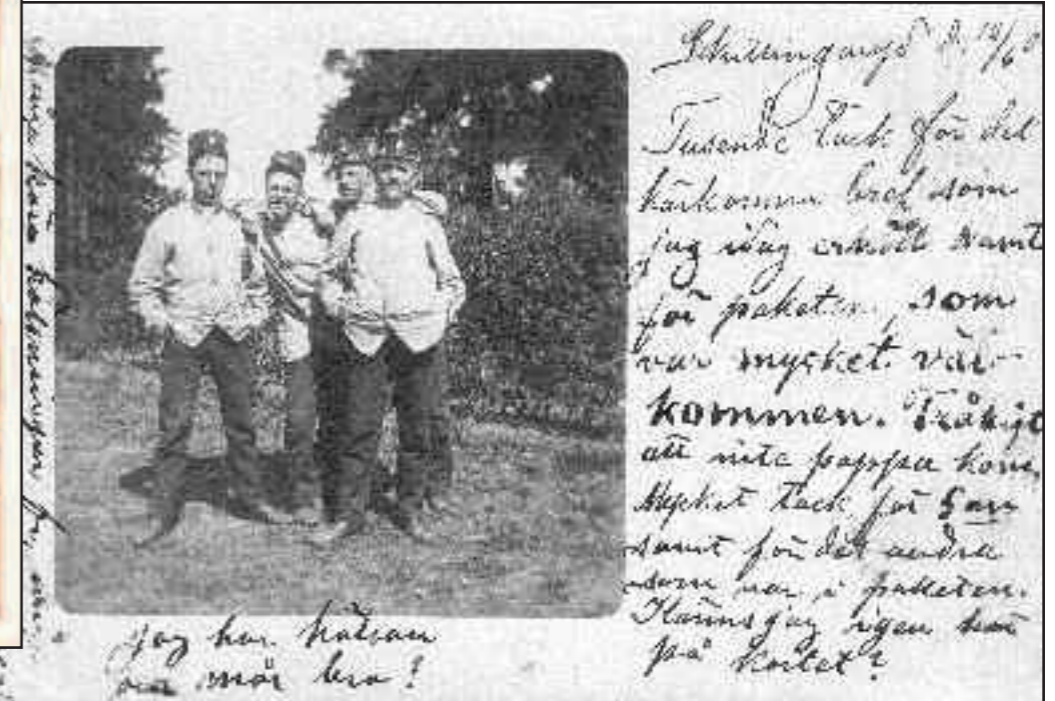 Tusende tack för det
kärkomna bref som
jag idag erhöll samt
för paketen, som
var mycket väl-
kommen. Tråkigt
att inte pappa kom.
Mycket tack för
samt för det andra
som var i paketen.
Känns jag igen
på kortet?
jag har hälsan
och mår bra!
kära hälsningar